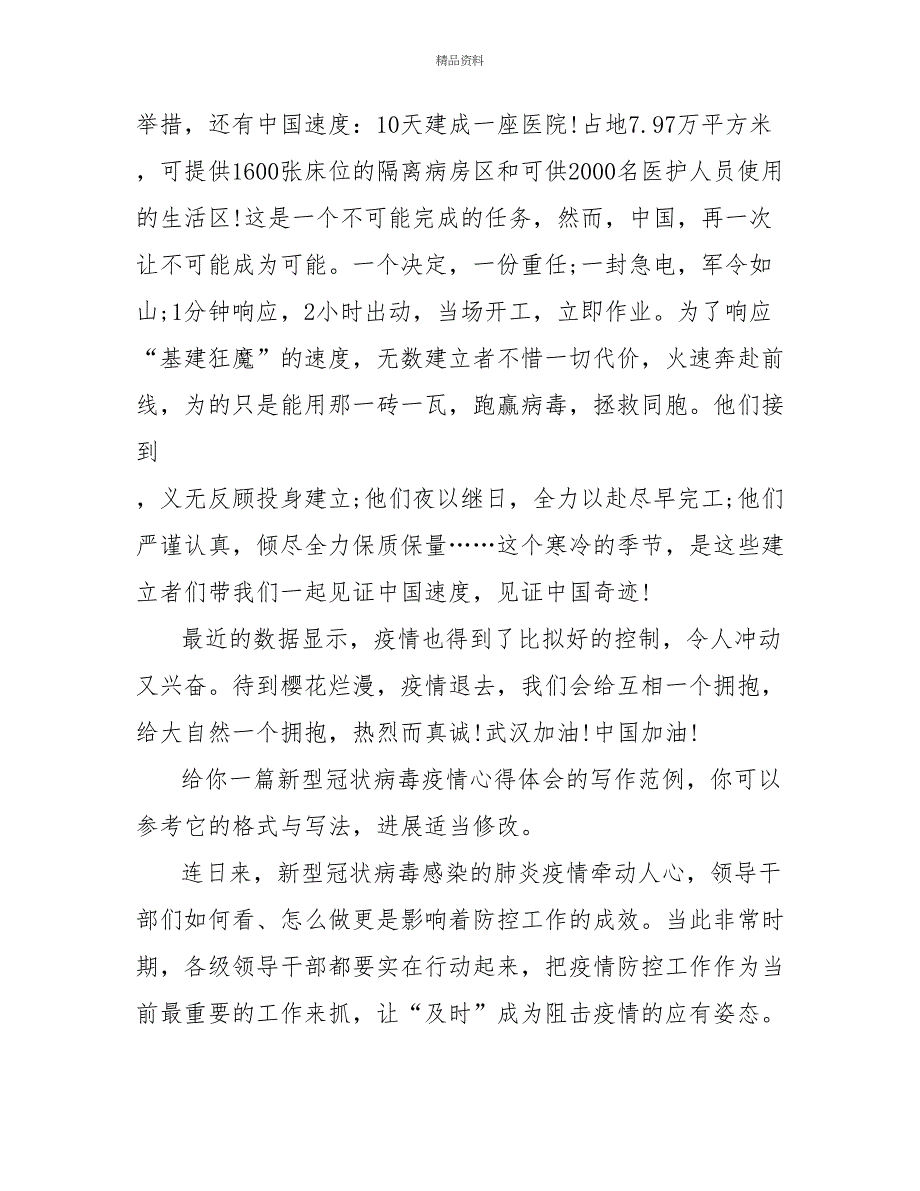 精品资料
举措，还有中国速度：10天建成一座医院!占地7.97万平方米
，可提供1600张床位的隔离病房区和可供2000名医护人员使用
的生活区!这是一个不可能完成的任务，然而，中国，再一次
让不可能成为可能。一个决定，一份重任;一封急电，军令如
山;1分钟响应，2小时出动，当场开工，立即作业。为了响应
“基建狂魔”的速度，无数建立者不惜一切代价，火速奔赴前
线，为的只是能用那一砖一瓦，跑赢病毒，拯救同胞。他们接
到
，义无反顾投身建立;他们夜以继日，全力以赴尽早完工;他们
严谨认真，倾尽全力保质保量……这个寒冷的季节，是这些建
立者们带我们一起见证中国速度，见证中国奇迹!
最近的数据显示，疫情也得到了比拟好的控制，令人冲动
又兴奋。待到樱花烂漫，疫情退去，我们会给互相一个拥抱，
给大自然一个拥抱，热烈而真诚!武汉加油!中国加油!
给你一篇新型冠状病毒疫情心得体会的写作范例，你可以
参考它的格式与写法，进展适当修改。
连日来，新型冠状病毒感染的肺炎疫情牵动人心，领导干
部们如何看、怎么做更是影响着防控工作的成效。当此非常时
期，各级领导干部都要实在行动起来，把疫情防控工作作为当
前最重要的工作来抓，让“及时”成为阻击疫情的应有姿态。